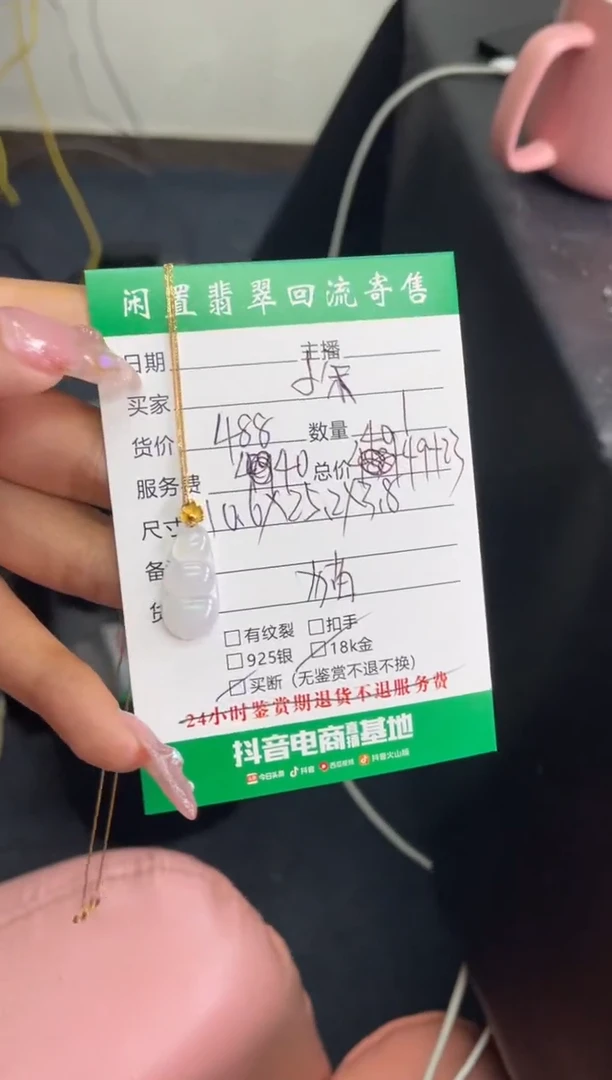 闲置翡翠回流寄售
日期 主播
买家
货价 488 数量 1
服务费 40 总价
尺寸 10.6X25.2X3.8
备
货
□有纹裂 □扣手
□925银 □18k金
□买断（无鉴赏不退不换）
24小时鉴赏期退货不退服务费
抖音电商直播基地
今日头条 抖音 西瓜视频 抖音火山版